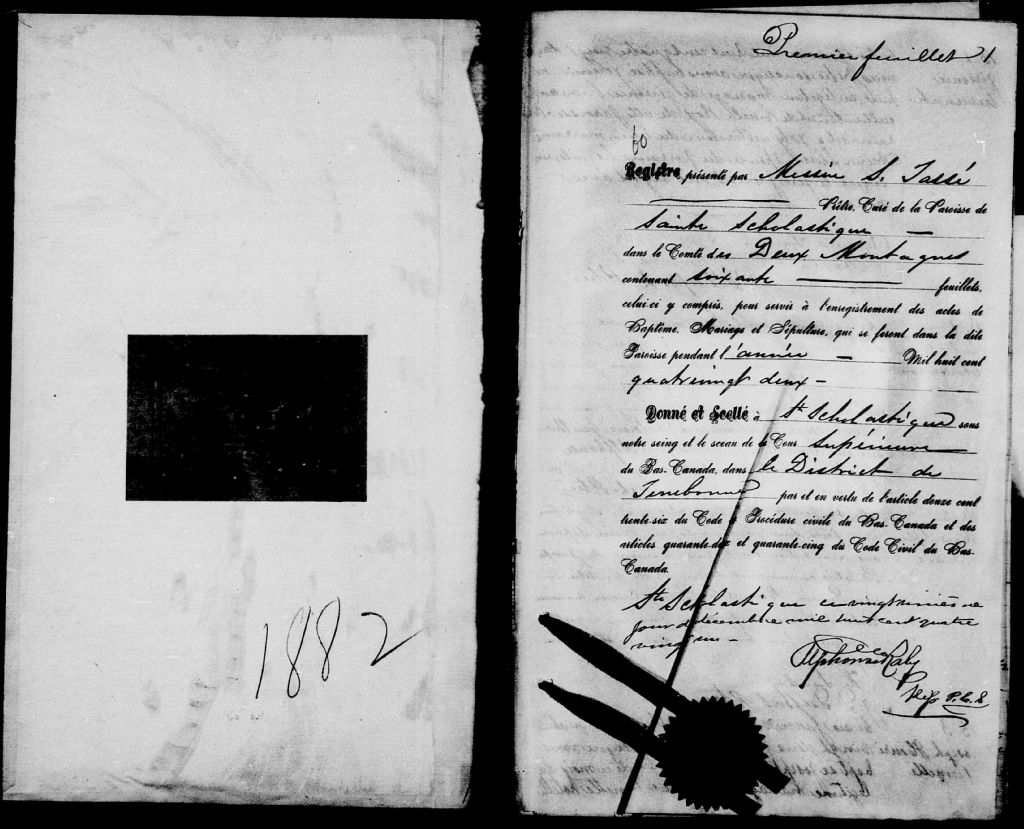 1882
Premier feuillet 1
60
Registre présenté par Messire S. Tassé
Prêtre, Curé de la Paroisse de
Sainte Scholastique
dans le Comté des Deux Montagnes
contenant soixante feuillets,
celui-ci y compris, pour servir à l'enregistrement des actes de
Baptême, Mariage et Sépulture, qui se feront dans la dite
Paroisse pendant l'année Mil huit cent
quatrevingt deux -
Donné et Scellé à Ste Scholastique sous
notre seing et le sceau de la Cour Supérieure
du Bas-Canada, dans le District de
Terrebonne par et en vertu de l'article douze cent
trente-six du Code de Procédure civile du Bas-Canada et des
articles quarante-deux et quarante-cinq du Code Civil du Bas-
Canada.
Ste Scholastique ce vingtroisième
jour de décembre mil huit cent quatre
vingt un -
Alphonse
P. C. S